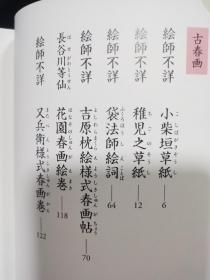 古春画
絵師不詳 小柴垣草紙 ―6
絵師不詳 稚児之草紙 ―12
絵師不詳 袋法師絵詞 ―64
絵師不詳 吉原枕絵様式春画帖 ―70
長谷川等仙 花園春画絵巻 ―118
絵師不詳 又兵衛様式春画巻 122